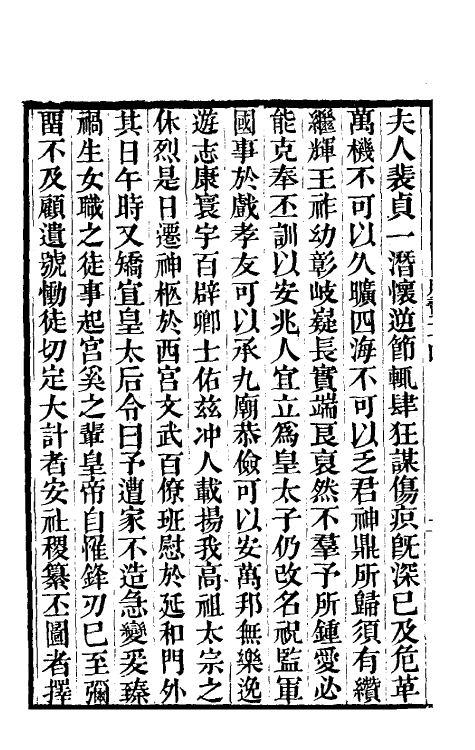 夫人裴貞一潛懷逆節輒肆狂謀傷疻既深已及危革
萬機不可以久曠四海不可以乏君神鼎所歸須有纘
繼輝王祚幼彰岐嶷長實端良裒然不羣予所鍾愛必
能克奉丕訓以安兆人宜立爲皇太子仍改名柷監軍
國事於戲孝友可以承九廟恭儉可以安萬邦無樂逸
遊志康寰宇百辟卿士佑兹冲人載揚我高祖太宗之
休烈是日遷神柩於西宮文武百僚班慰於延和門外
其日午時又矯宣皇太后令曰予遭家不造急變爰臻
禍生女職之徒事起宮奚之輩皇帝自罹鋒刃已至彌
留不及顧遺號慟徒切定大計者安社稷纂丕圖者擇